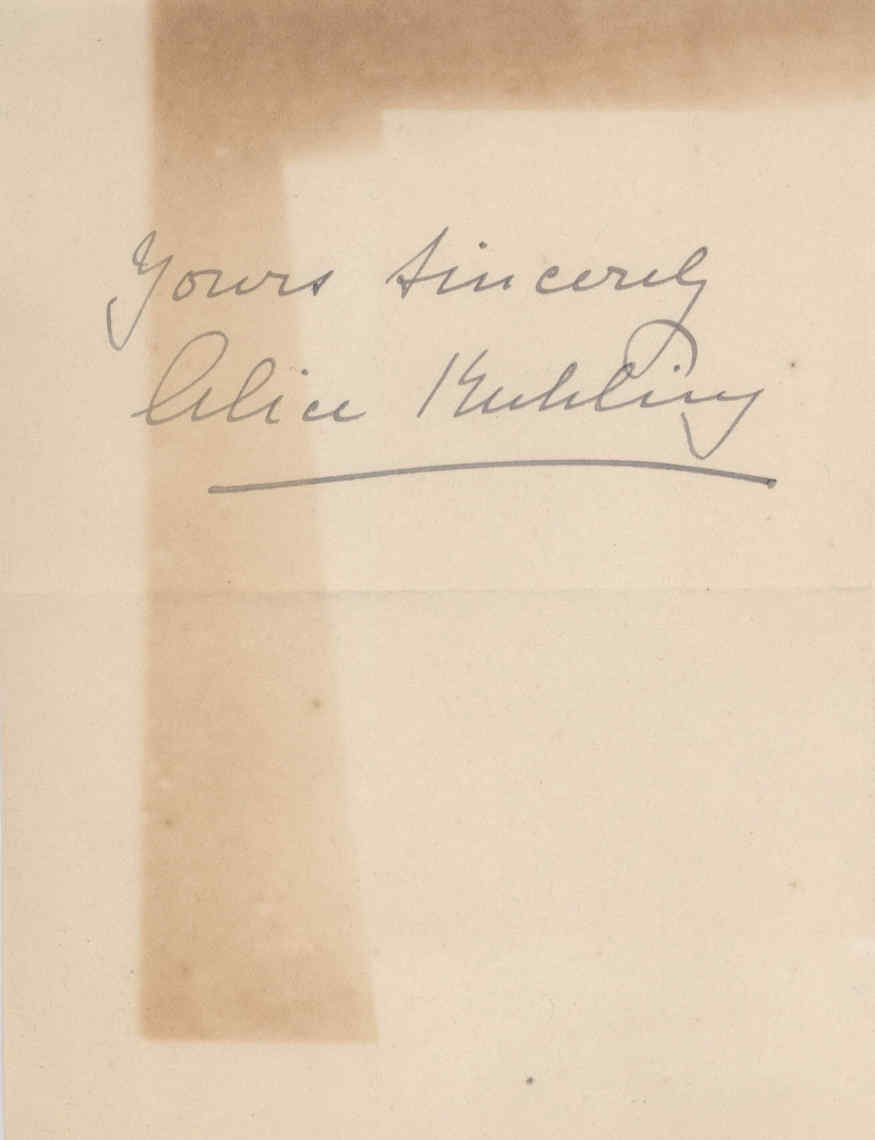 Yours sincerely
Alice Kuhling